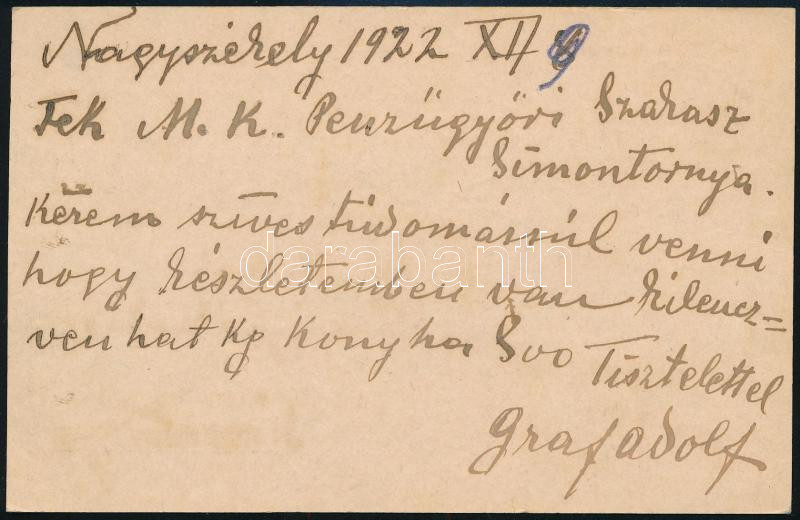 Nagyszékely 1922 XII 9
Tek M. K. Penzügyöri Szakasz
Simontornya.
Kérem szives tudomásúl venni
darabanth
hogy készletemben van kilencz=
ven hat Kg Konyha Soo Tisztelettel
Graf Adolf